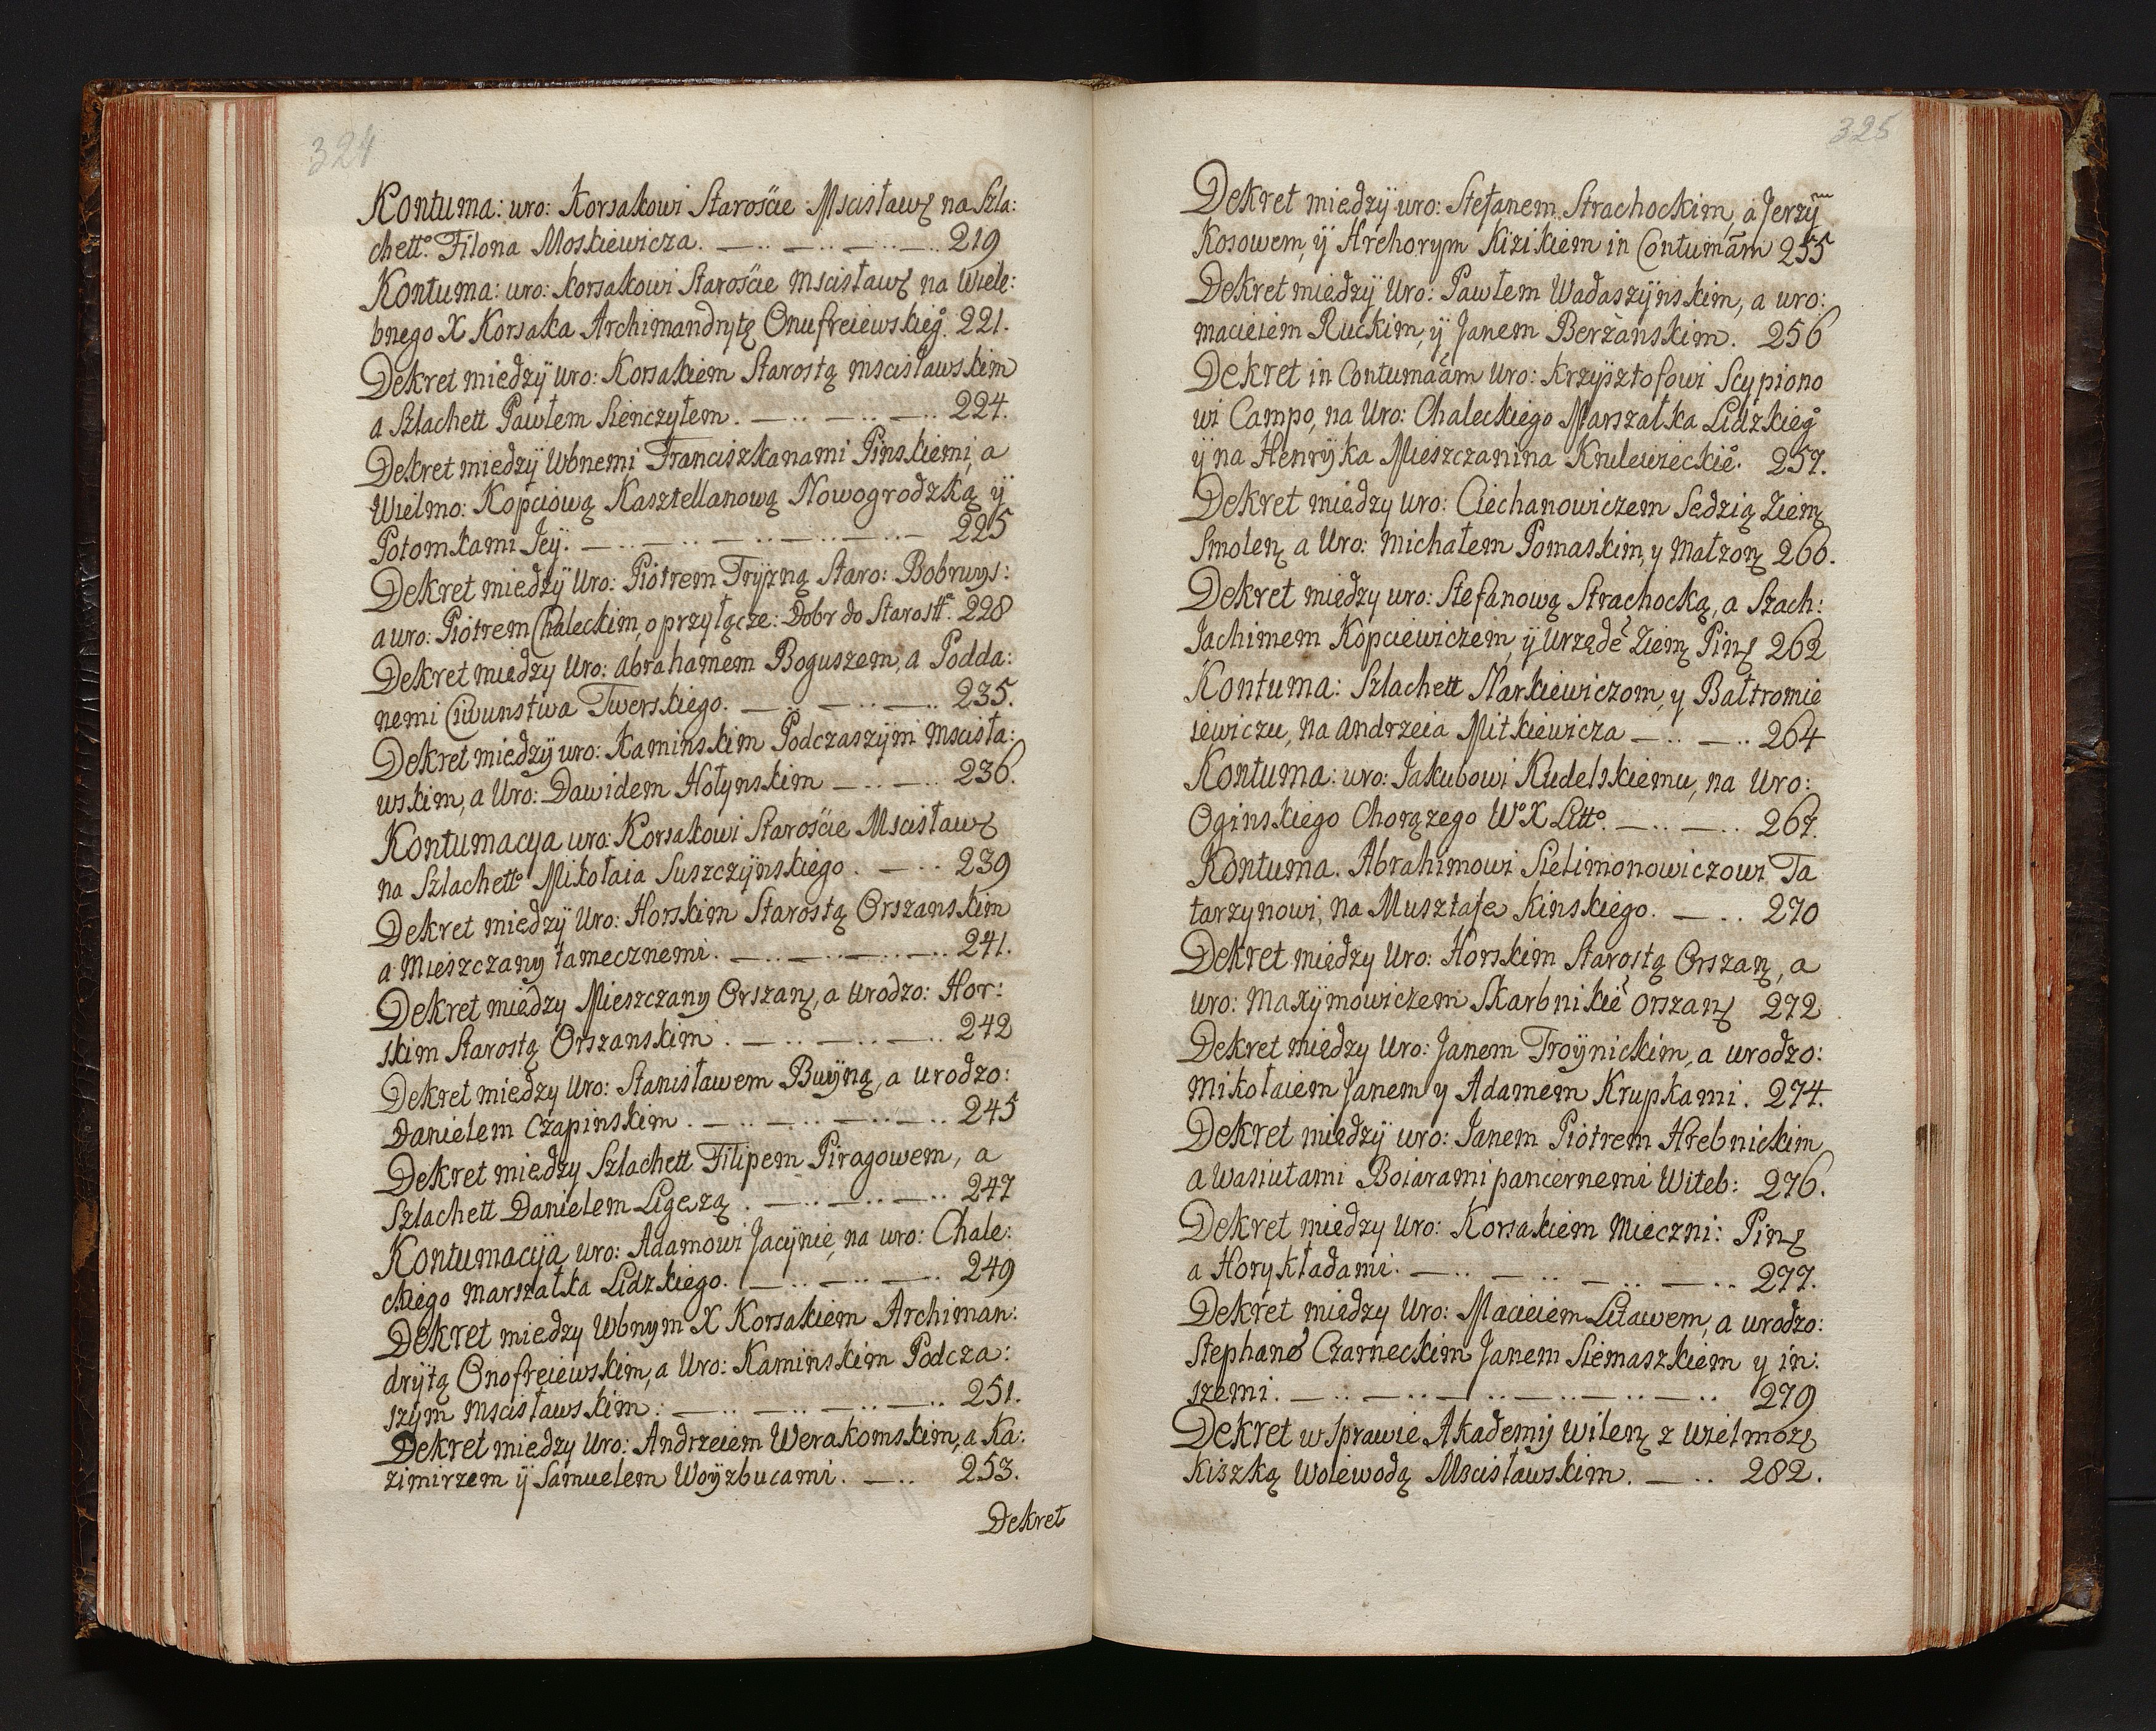 324
Kontuma: uro: Korsakowi Starośćie Mscisław na Szla:
chetto Filona Moskiewicza. — .. — .. — .. — .. 219
Kontuma: uro: Korsakowi Starośćie Mscisław na Wiele:
bnego X Korsaka Archimandrytę Onufreiewskieg. 221.
Dekret miedzÿ uro: Korsakiem Starostą mscisławskim
a Szlachett Pawłem Sienczyłem. — .. — .. — .. 224.
Dekret miedzÿ Wbnemi Franciszkanami Pinskiemi, a
Wielmo: Kopciową Kasztellanową Nowogrodzką ÿ
Potomkami Jeÿ. — .. — .. — .. — .. — 225
Dekret miedzÿ Uro: Piotrem Trÿzną Staro: Bobruys:
a uro: Piotrem Chaleckim, o przyłącze: Dobr do Starostt. 228
Dekret miedzy Uro: Abrahamem Boguszem, a Podda:
nemi Ciwunstwa Twerskiego. — .. — .. — .. 235.
Dekret miedzÿ uro: Kaminskim Podczaszÿm Mscisła:
wskim, a Uro: Dawidem Hołynskim — .. — .. 236.
Kontumacya uro: Korsakowi Starośćie Mscisław
na Szlachetto Mikołaia Suszczÿnskiego. — .. 239
Dekret miedzÿ Uro: Horskim Starostą Orszanskim
a Mieszczany tamecznemi. — .. — .. — .. 241.
Dekret miedzy Mieszczany Orszan, a Urodzo: Hor:
skim Starostą Orszanskim. — .. — .. — .. 242
Dekret miedzy Uro: Stanisławem Buÿną, a urodzo:
Danielem Czapinskim. — .. — .. — .. 245
Dekret miedzy Szlachett Filipem Piragowem, a
Szlachett Danielem Ligezą. — .. — .. — .. 247
Kontumacÿa uro: Adamowi Jacÿnie, na uro: Chale:
ckiego Marszałka Lidzkiego. — .. — .. — .. 249
Dekret miedzy Wbnym X Korsakiem Archiman:
drÿtą Onofreiewskim, a Uro: Kaminskim Podcza:
szym mscisławskim. — .. — .. — .. — .. 251.
Dekret miedzy Uro: Andrzeiem Werakomskim, a Ka:
zimirzem ÿ Samuelem Woÿzbucami. — .. 253.
Dekret
325
Dekret miedzÿ uro: Stefanem Strachockim, a Jerzÿm
Kosowem, ÿ Hrehorym Kizikiem in Contumām 255
Dekret miedzÿ Uro: Pawłem Wadaszÿnskim, a uro:
macieiem Ruckim, ÿ Janem Berżanskim. 256
Dekret in Contumaām Uro: Krzÿsztofowi Scypiono
wi Campo, na Uro: Chaleckiego Marszałka Lidzkieg
ÿ na Henrÿka Mieszczanina Krulewieckie. 257.
Dekret miedzy uro: Ciechanowiczem Sedzią Ziem
Smolen a Uro: Michałem Pomaskim, y Małzon 260.
Dekret miedzy uro: Stefanową Strachocką, a Szach:
Jachimem Kopciewiczem, ÿ Urzęde Ziem Pin 262
Kontuma: Szlachett Narkiewiczom, y Bałtromie
iewiczu, na Andrzeia Mitkiewicza — .. — .. 264
Kontuma: uro: Jakubowi Kudelskiemu, na Uro:
Oginskiego Chorązego Wo X Litto. — .. — .. 267.
Kontuma. Abrahimowi Sielimonowiczowi Ta
tarzynowi, na Musztafe Kinskiego. — .. 270
Dekret miedzy Uro: Horskim Starostą Orszan, a
uro: Maxÿmowiczem Skarbnikie Orszan 272
Dekret miedzy Uro: Janem Troÿnickim, a urodzo:
Mikołaiem Janem y Adamem Krupkami. 274.
Dekret miedzÿ uro: Janem Piotrem Hrebnickim
a Wasiutami Boiarami pancernemi Witeb: 276.
Dekret miedzy Uro: Korsakiem Mieczni: Pin
a Horykładami. — .. — .. — .. — .. 277.
Dekret miedzy Uro: Macieiem Litawem, a urodzo:
Stephane Czarneckim Janem Siemaszkiem y in:
szemi. — .. — .. — .. — .. — .. 279
Dekret w Sprawie Akademij Wilen z Wielmoz
Kiszką Woiewodą Mscisławskim. — .. 282.